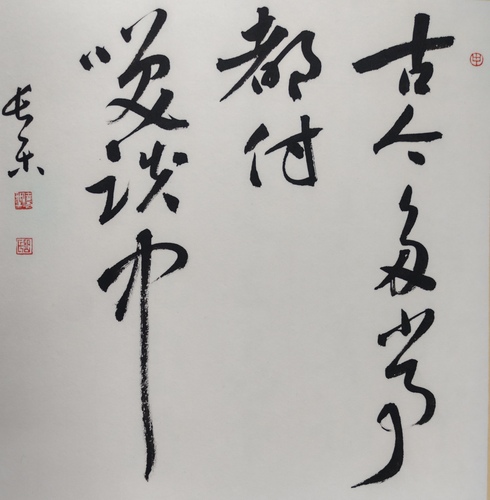 古今多少事
都付
笑谈中
长乐